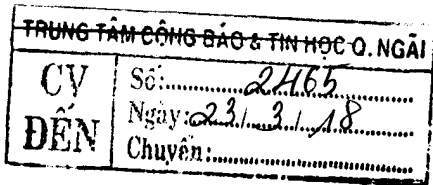 TRUNG TÂM CÔNG BÁO & TIN HỌC Q.NGÃI
CV ĐẾN
Số:..........2465..........
Ngày:..23./...3../..18......
Chuyển:..............................